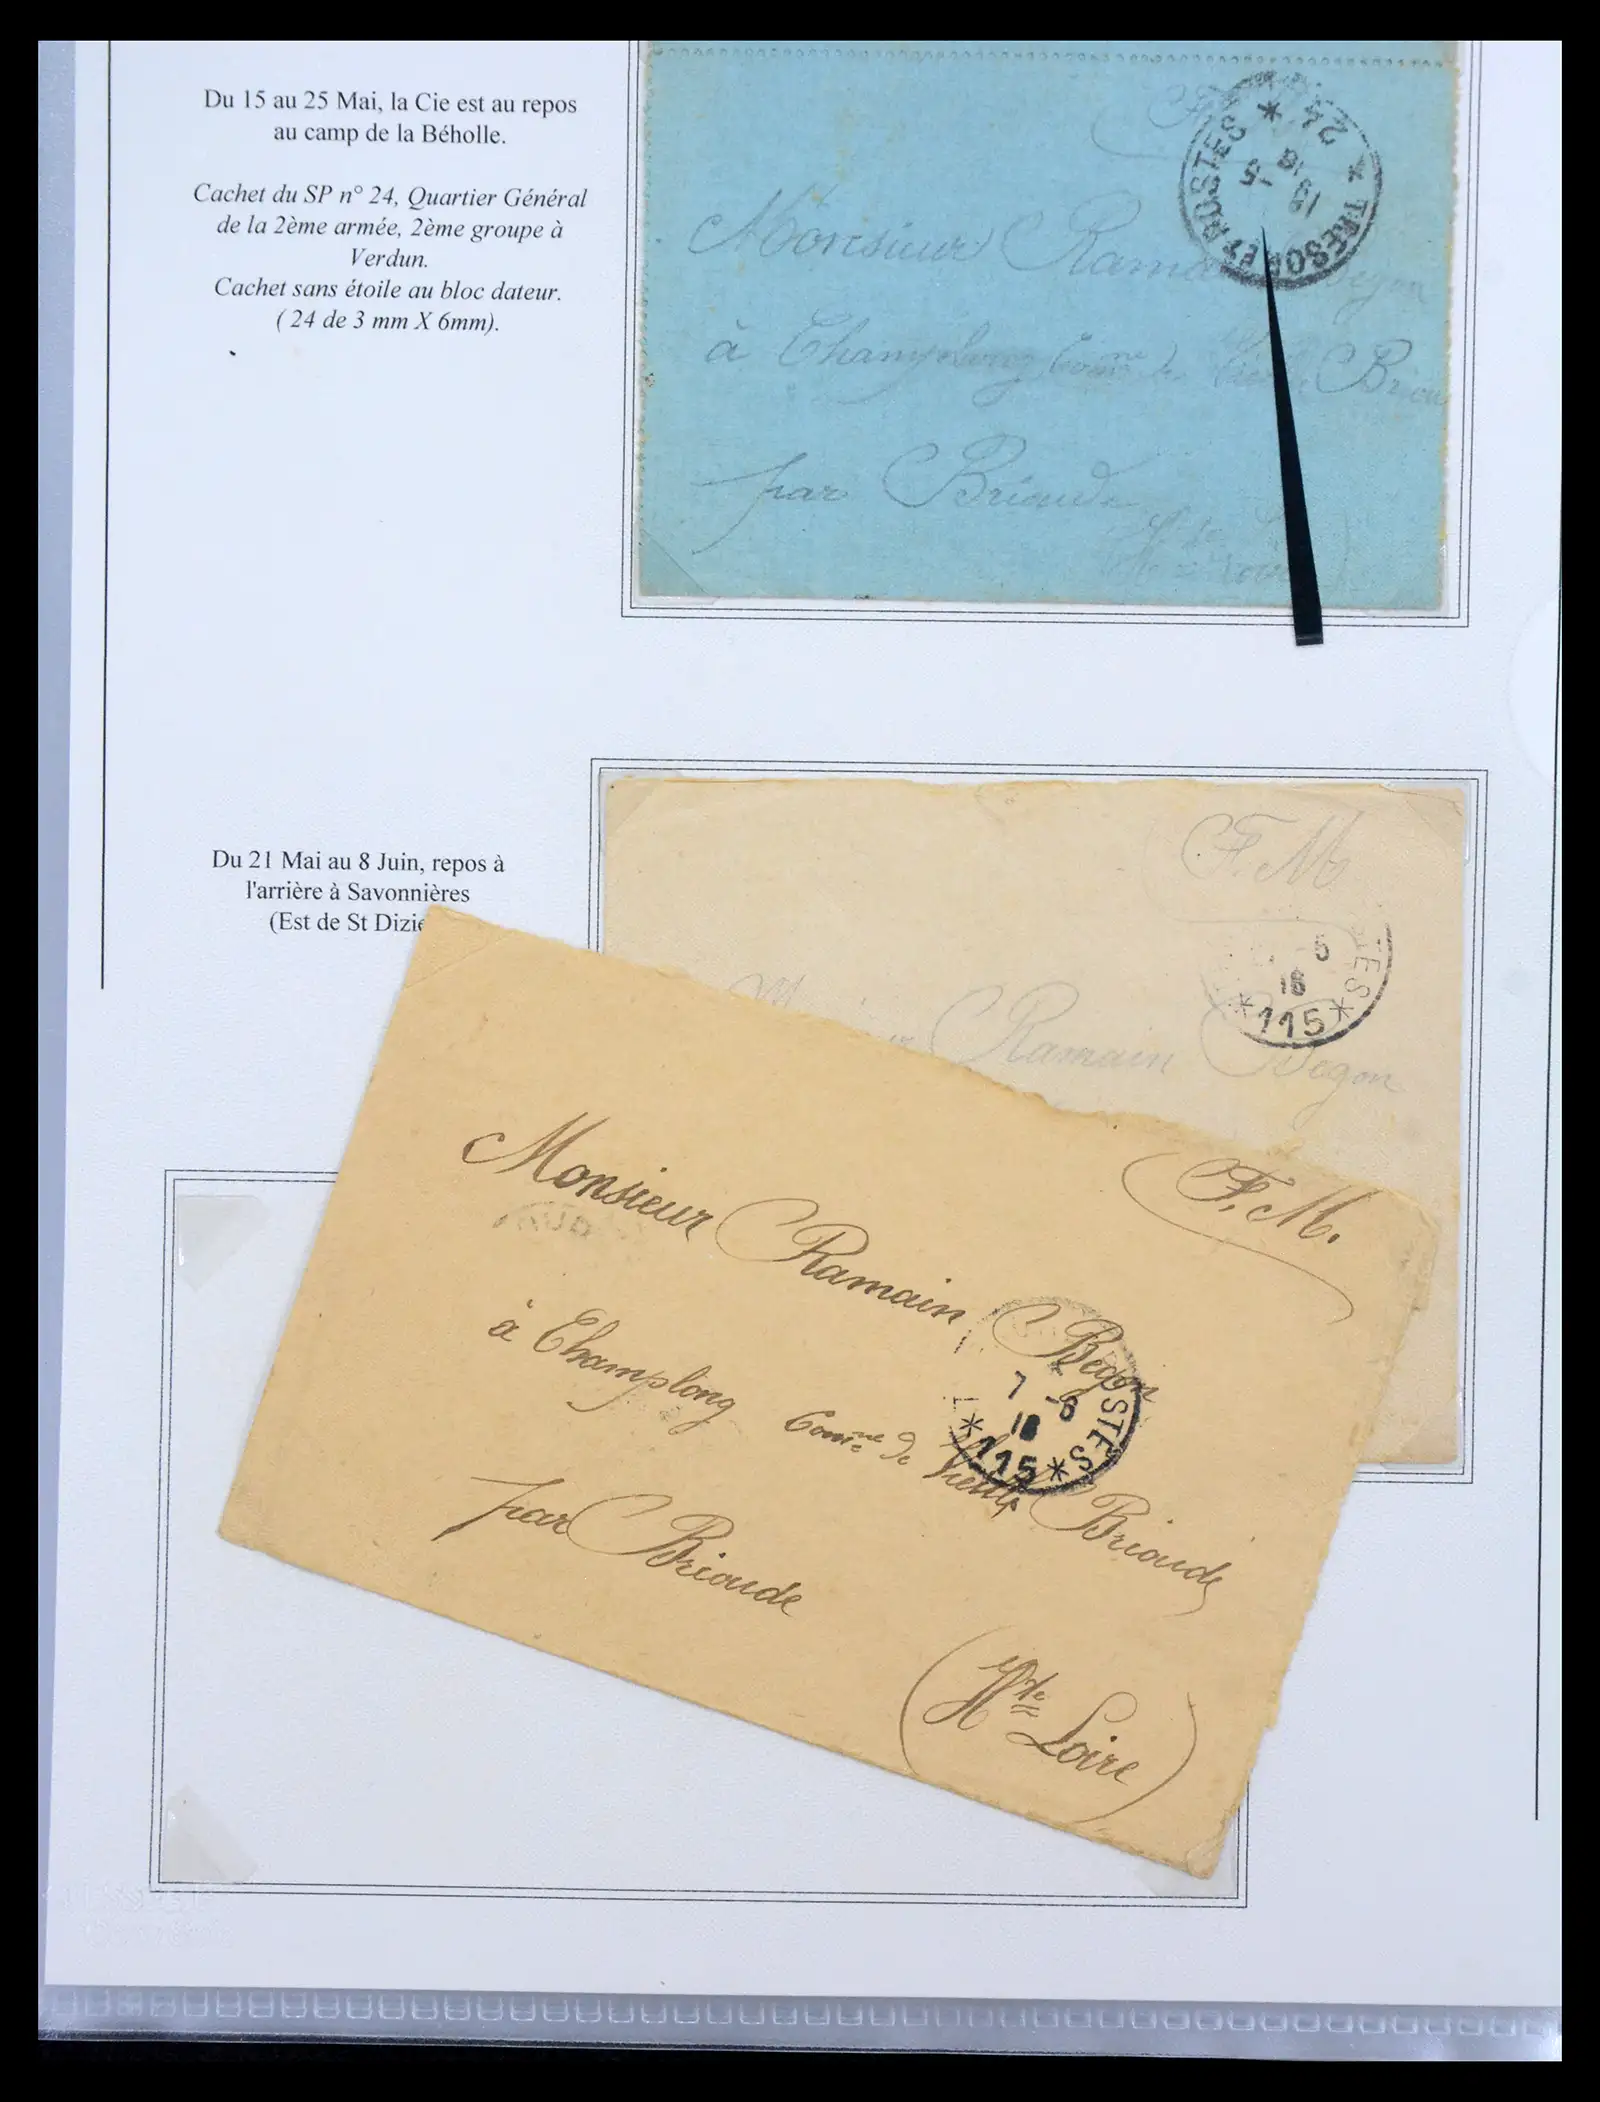 Du 15 au 25 Mai, la Cie est au repos
au camp de la Béholle.
Cachet du SP n° 24, Quartier Général
de la 2ème armée, 2ème groupe à
Verdun.
Cachet sans étoile au bloc dateur.
( 24 de 3 mm X 6mm).
* TRESOR ET POSTES *
24
19 -5
16
Monsieur Ramain Begon
à Champlong Comne de Vieille Brioude
par Brioude
Hte Loire
Du 21 Mai au 8 Juin, repos à
l'arrière à Savonnières
(Est de St Dizie
F. M
-6
16
*115*
Ramain Begon
F. M.
Monsieur Ramain Begon
7 -6
16
STES
*115*
à Champlong Comne de Vieille Brioude
par Brioude
(Hte Loire)